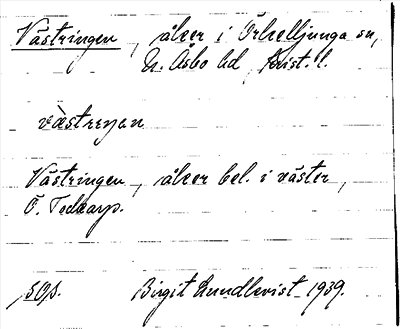 Västringen, åker i Örkelljunga sn,
N. Åsbo hd, Krist. l.
västreŋən
Västringen, åker bel. i väster,
Ö. Tockarp.
SOA. Birgit Lundkvist 1939.